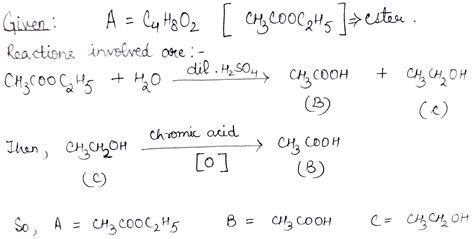 Given: A = C4H8O2 [ CH3COOC2H5 ] ⇒ ester.
Reactions involved are :-
CH3COOC2H5 + H2O dil. H2SO4 → CH3COOH + CH3CH2OH
(B) (C)
Then, CH3CH2OH chromic acid [O] → CH3COOH
(C) (B)
So, A = CH3COOC2H5 B = CH3COOH C = CH3CH2OH